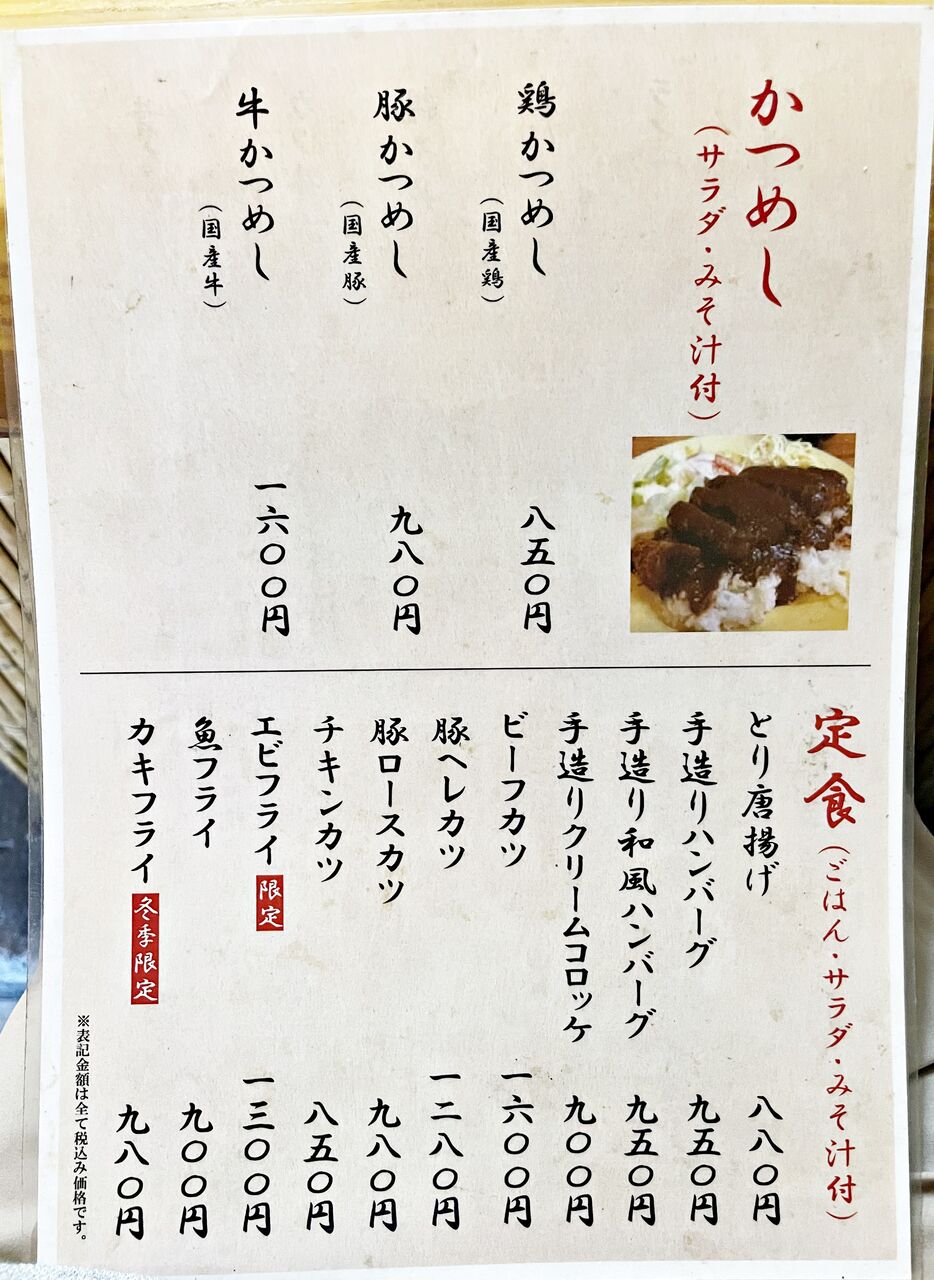 かつめし
（サラダ・みそ汁付）
鶏かつめし
（国産鶏）
八五〇円
豚かつめし
（国産豚）
九八〇円
牛かつめし
（国産牛）
一六〇〇円
定食（ごはん・サラダ・みそ汁付）
とり唐揚げ 八八〇円
手造りハンバーグ 九五〇円
手造り和風ハンバーグ 九五〇円
手造りクリームコロッケ 九〇〇円
ビーフカツ 一六〇〇円
豚ヘレカツ 一二八〇円
豚ロースカツ 九八〇円
チキンカツ 八五〇円
エビフライ 限定 一三〇〇円
魚フライ 九〇〇円
カキフライ 冬季限定 九八〇円
※表記金額は全て税込み価格です。